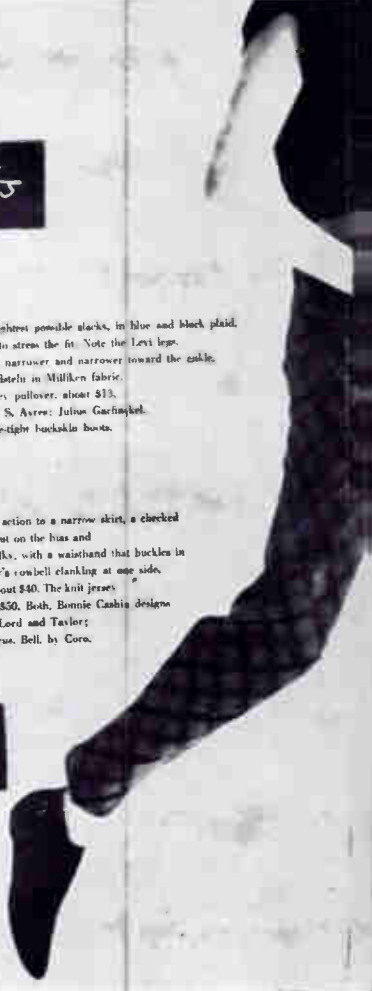 ghtest possible slacks, in blue and black plaid,
to stress the fit. Note the Levi legs,
narrower and narrower toward the ankle.
dstein in Milliken fabric.
ey pullover, about $13.
S. Ayres; Julius Garfinckel.
e-tight buckskin boots.
action to a narrow skirt, a checked
ut on the bias and
lks, with a waistband that buckles in
r's cowbell clanking at one side,
out $40. The knit jersey
$50. Both, Bonnie Cashin designs
Lord and Taylor;
cus. Bell, by Coro.